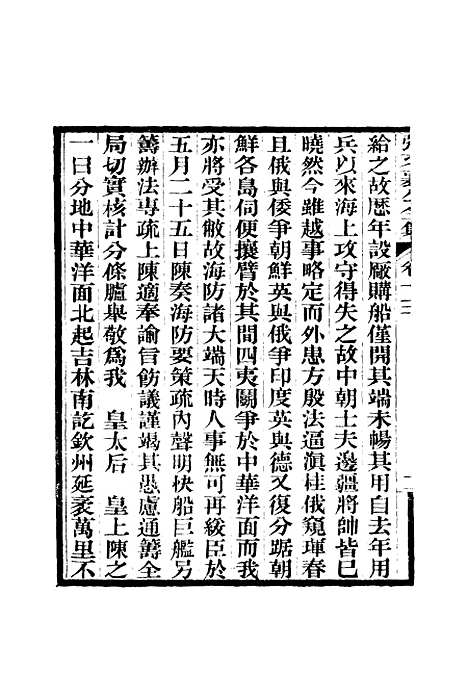 給之故歷年設廠購船僅開其端未暢其用自去年用
兵以來海上攻守得失之故中朝士夫邊疆將帥皆已
曉然今雖越事略定而外患方殷法逼滇桂俄窺琿春
且俄與倭爭朝鮮英與俄爭印度英與德又復分踞朝
鮮各島伺便攘臂於其間四夷關爭於中華洋面而我
亦將受其敝故海防諸大端天時人事無可再緩臣於
五月二十五日陳奏海防要策疏內聲明快船巨艦另
籌辦法專疏上陳適奉諭旨飭議謹竭其愚慮通籌全
局切實核計分條臚舉敬爲我 皇太后 皇上陳之
一曰分地中華洋面北起吉林南訖欽州延袤萬里不